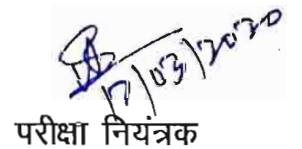 17/03/2020
परीक्षा नियंत्रक